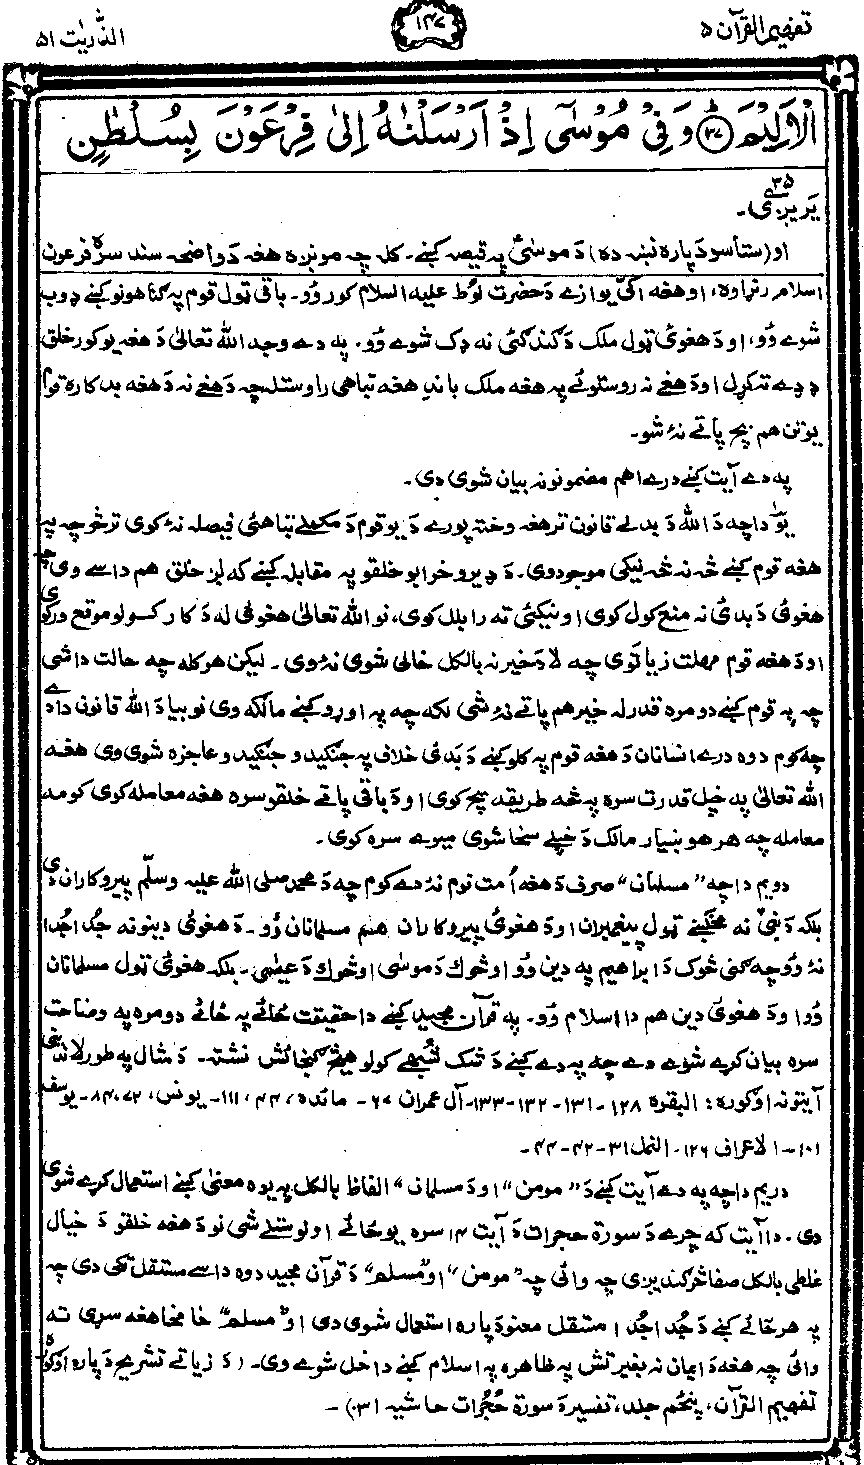 تفهیم القرآن ۵
۱۴۷
الذّٰریٰت ۵۱
الْاَلِیْمَ ﴿۳۷﴾ وَ فِیْ مُوْسٰٓی اِذْ اَرْسَلْنٰهُ اِلٰی فِرْعَوْنَ بِسُلْطٰنٍ
یَریږی۔ ۳۵
او (ستاسو دَپاره نښه ده) دَ موسٰیؑ په قیصه کښے۔ کله چه مونږه هغه دَ واضحه سند سره فرعون
اسلام رنړا وه، او هغه اکیّ یوازے دَ حضرت لوُط علیه السلام کور وُو۔ باقی ټول قوم په ګناهونو کښے ډوب
شوے وُو، او دَ هغوئ ټول ملک دَ ګندګئ نه ډک شوے وُو۔ په دے وجه الله تعالیٰ دَ هغه یو کور خلق
بچ کړل او دَ هغے نه روستو ئے په هغه ملک باندِ هغه تباهی راوستله چه دَ هغے نه دَ هغه بدکاره قوم
یو تن هم بچ پاتے نۀ شو۔
په دے آیت کښے درے اهم مضمونونه بیان شوی دی۔
یوّ داچه دَ الله دَ بدلے قانون تر هغه وخته پورے دَ یو قوم دَ مکملے تباهئ فیصله نۀ کوی ترڅو چه په
هغه قوم کښے څه نه څه نیکی موجود وی۔ دَ ډیرو خرابو خلقو په مقابله کښے که لږ خلق هم داسے وی چه
هغوئ دَ بدئ نه منع کول کوی او نیکئ ته رابلل کوی، نو الله تعالیٰ هغوئ له دَ کار کولو موقع ورکوی
او دَ هغه قوم مهلت زیاتوی چه لا دَ خیر نه بالکل خالی شوی نۀ وی۔ لیکن هر کله چه حالت داشی
چه په قوم کښے دومره قدر له خیر هم پاتے نۀ شی لکه چه په اوړو کښے مالګه وی نو بیا دَ الله قانون دادے
چه کوم دوه درے انسانان دَ هغه قوم په کلو کښے دَ بدئ خلاف په جنګیدو جنګیدو عاجزه شوی وی هغه
الله تعالیٰ په خپل قدرت سره په څه طریقه بچ کوی او دَ باقی پاتے خلقو سره هغه معامله کوی کومه
معامله چه هر هوښیار مالک دَ خپلے سخا شوی میوے سره کوی۔
دویم داچه "مسلمان" صرف دَ هغه اُمت نوم نۀ دے کوم چه دَ محمد صلی الله علیه وسلّم پیروکاران دی
بلکه دَ نبیؐ نه مخکښے ټول پیغمبران او دَ هغوئ پیروکاران هم مسلمانان وُو۔ دَ هغوئ دینونه جُدا جُدا
نۀ وُو چه ګنی څوک دَ ابراهیم په دین وُو او څوک دَ موسٰی او څوک دَ عیسٰی۔ بلکه هغوئ ټول مسلمانان
وُو او دَ هغوئ دین هم دا اسلام وُو۔ په قرآن مجید کښے دا حقیقت ځائے په ځائے دومره په وضاحت
سره بیان کړے شوے دے چه په دے کښے دَ شک شُبهے کولو هیڅ ګنجائش نشته۔ دَ مثال په طور لاندینی
آیتونه اوګوره: البقره ۱۲۸-۱۳۱-۱۳۲-۱۳۳۔ آل عمران ۶۷- مائده ۴۴، ۱۱۱۔ یونس، ۷۲، ۸۴۔ یوسف
۱۰۱-الاعراف ۱۲۶۔ النمل ۳۱-۴۲-۴۴۔
دریم داچه په دے آیت کښے دَ "مومن" او دَ مسلمان" الفاظ بالکل په یوه معنٰی کښے استعمال کړے شوی
دی۔ دا آیت که چرے دَ سورة حجرات دَ آیت ۱۴ سره یوځائے اولوستلے شی نو دَ هغه خلقو دَ خیال
غلطی بالکل صفا څرګندیږی چه وائی چه "مومن" او "مسلم" دَ قرآن مجید دوه داسے مستقل ټکی دی چه
په هر ځائے کښے دَ جُدا جُدا مستقل معنو دَپاره استعمال شوی دی او "مسلم" خامخا هغه سړی ته
وائی چه هغه دَ ایمان نه بغیر تش په ظاهره په اسلام کښے داخل شوے وی۔ (دَ زیاتے تشریح دَ پاره اوګورهٔ
تفهیم القرآن، پنځم جلد، تفسیر دَ سورة حُجُرات حاشیه ۳۱)۔